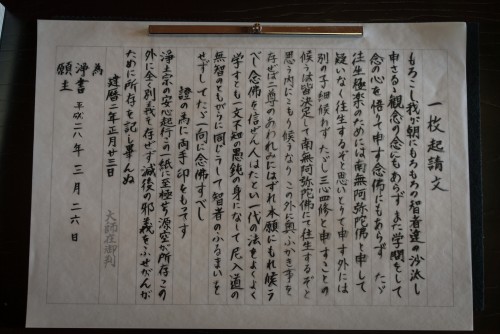 一枚起請文
もろこし我が朝にもろもろの智者達の沙汰し
申さるゝ観念の念にもあらず また学問をして
念の心を悟りて申す念佛にもあらず たゞ
往生極楽のためには南無阿弥陀佛と申して
疑いなく往生するぞと思いとりて申す外には
別の子細候わず たゞし三心四修と申すことの
候うは皆決定して南無阿弥陀佛にて往生するぞと
思う内にこもり候うなり この外に奥ふかき事を
存ぜば二尊のあわれみにはずれ本願にもれ候う
べし 念佛を信ぜん人はたとい一代の法をよくよく
学すとも一文不知の愚鈍の身になして尼入道の
無智のともがらに同じうして智者のふるまいを
せずしてたゞ一向に念佛すべし
證の為に両手印をもってす
浄土宗の安心起行この一紙に至極せり源空が所存この
外に全く別義を存ぜず滅後の邪義をふせがんが
ために所存を記し畢んぬ
建暦二年正月廿三日
大師在御判
為
浄書 平成二八年三月二六日
願主